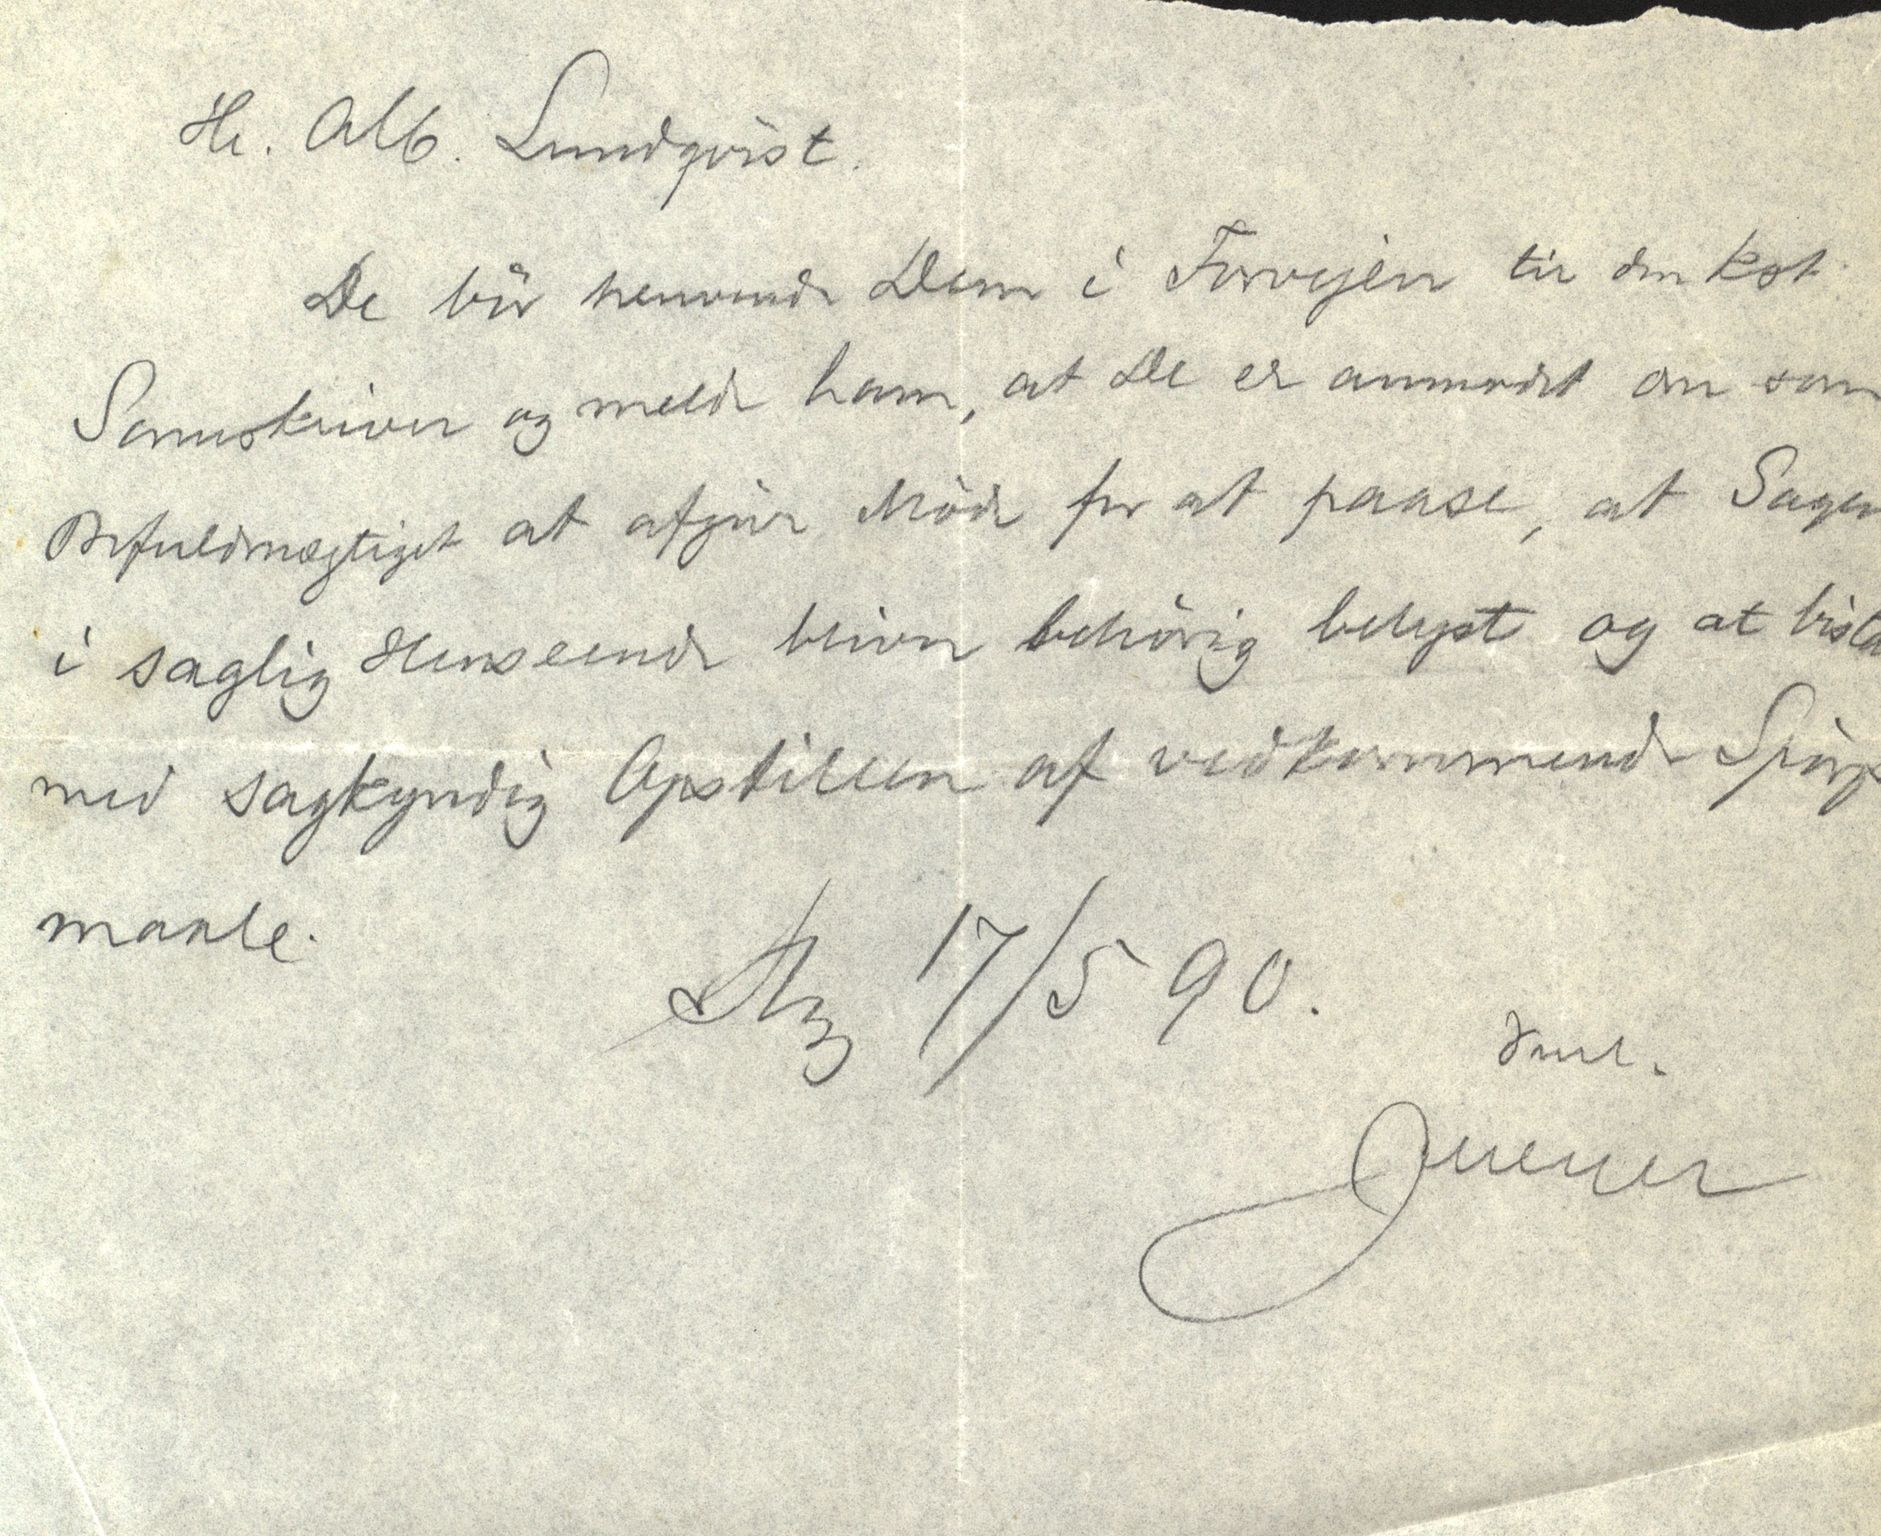 Hr. Alb. Lundqvist.
De bör henvende Dem i Forvejen til den kst.
Sorenskriver og melde ham, at De er anmodet om som
Befuldmægtiget at afgive Möde for at paase, at Sagen
i saglig Henseende bliver behörig belyst og at bista
med sagkyndig Opstillen af vedkommende Spörgs
maale.
17/5 90.